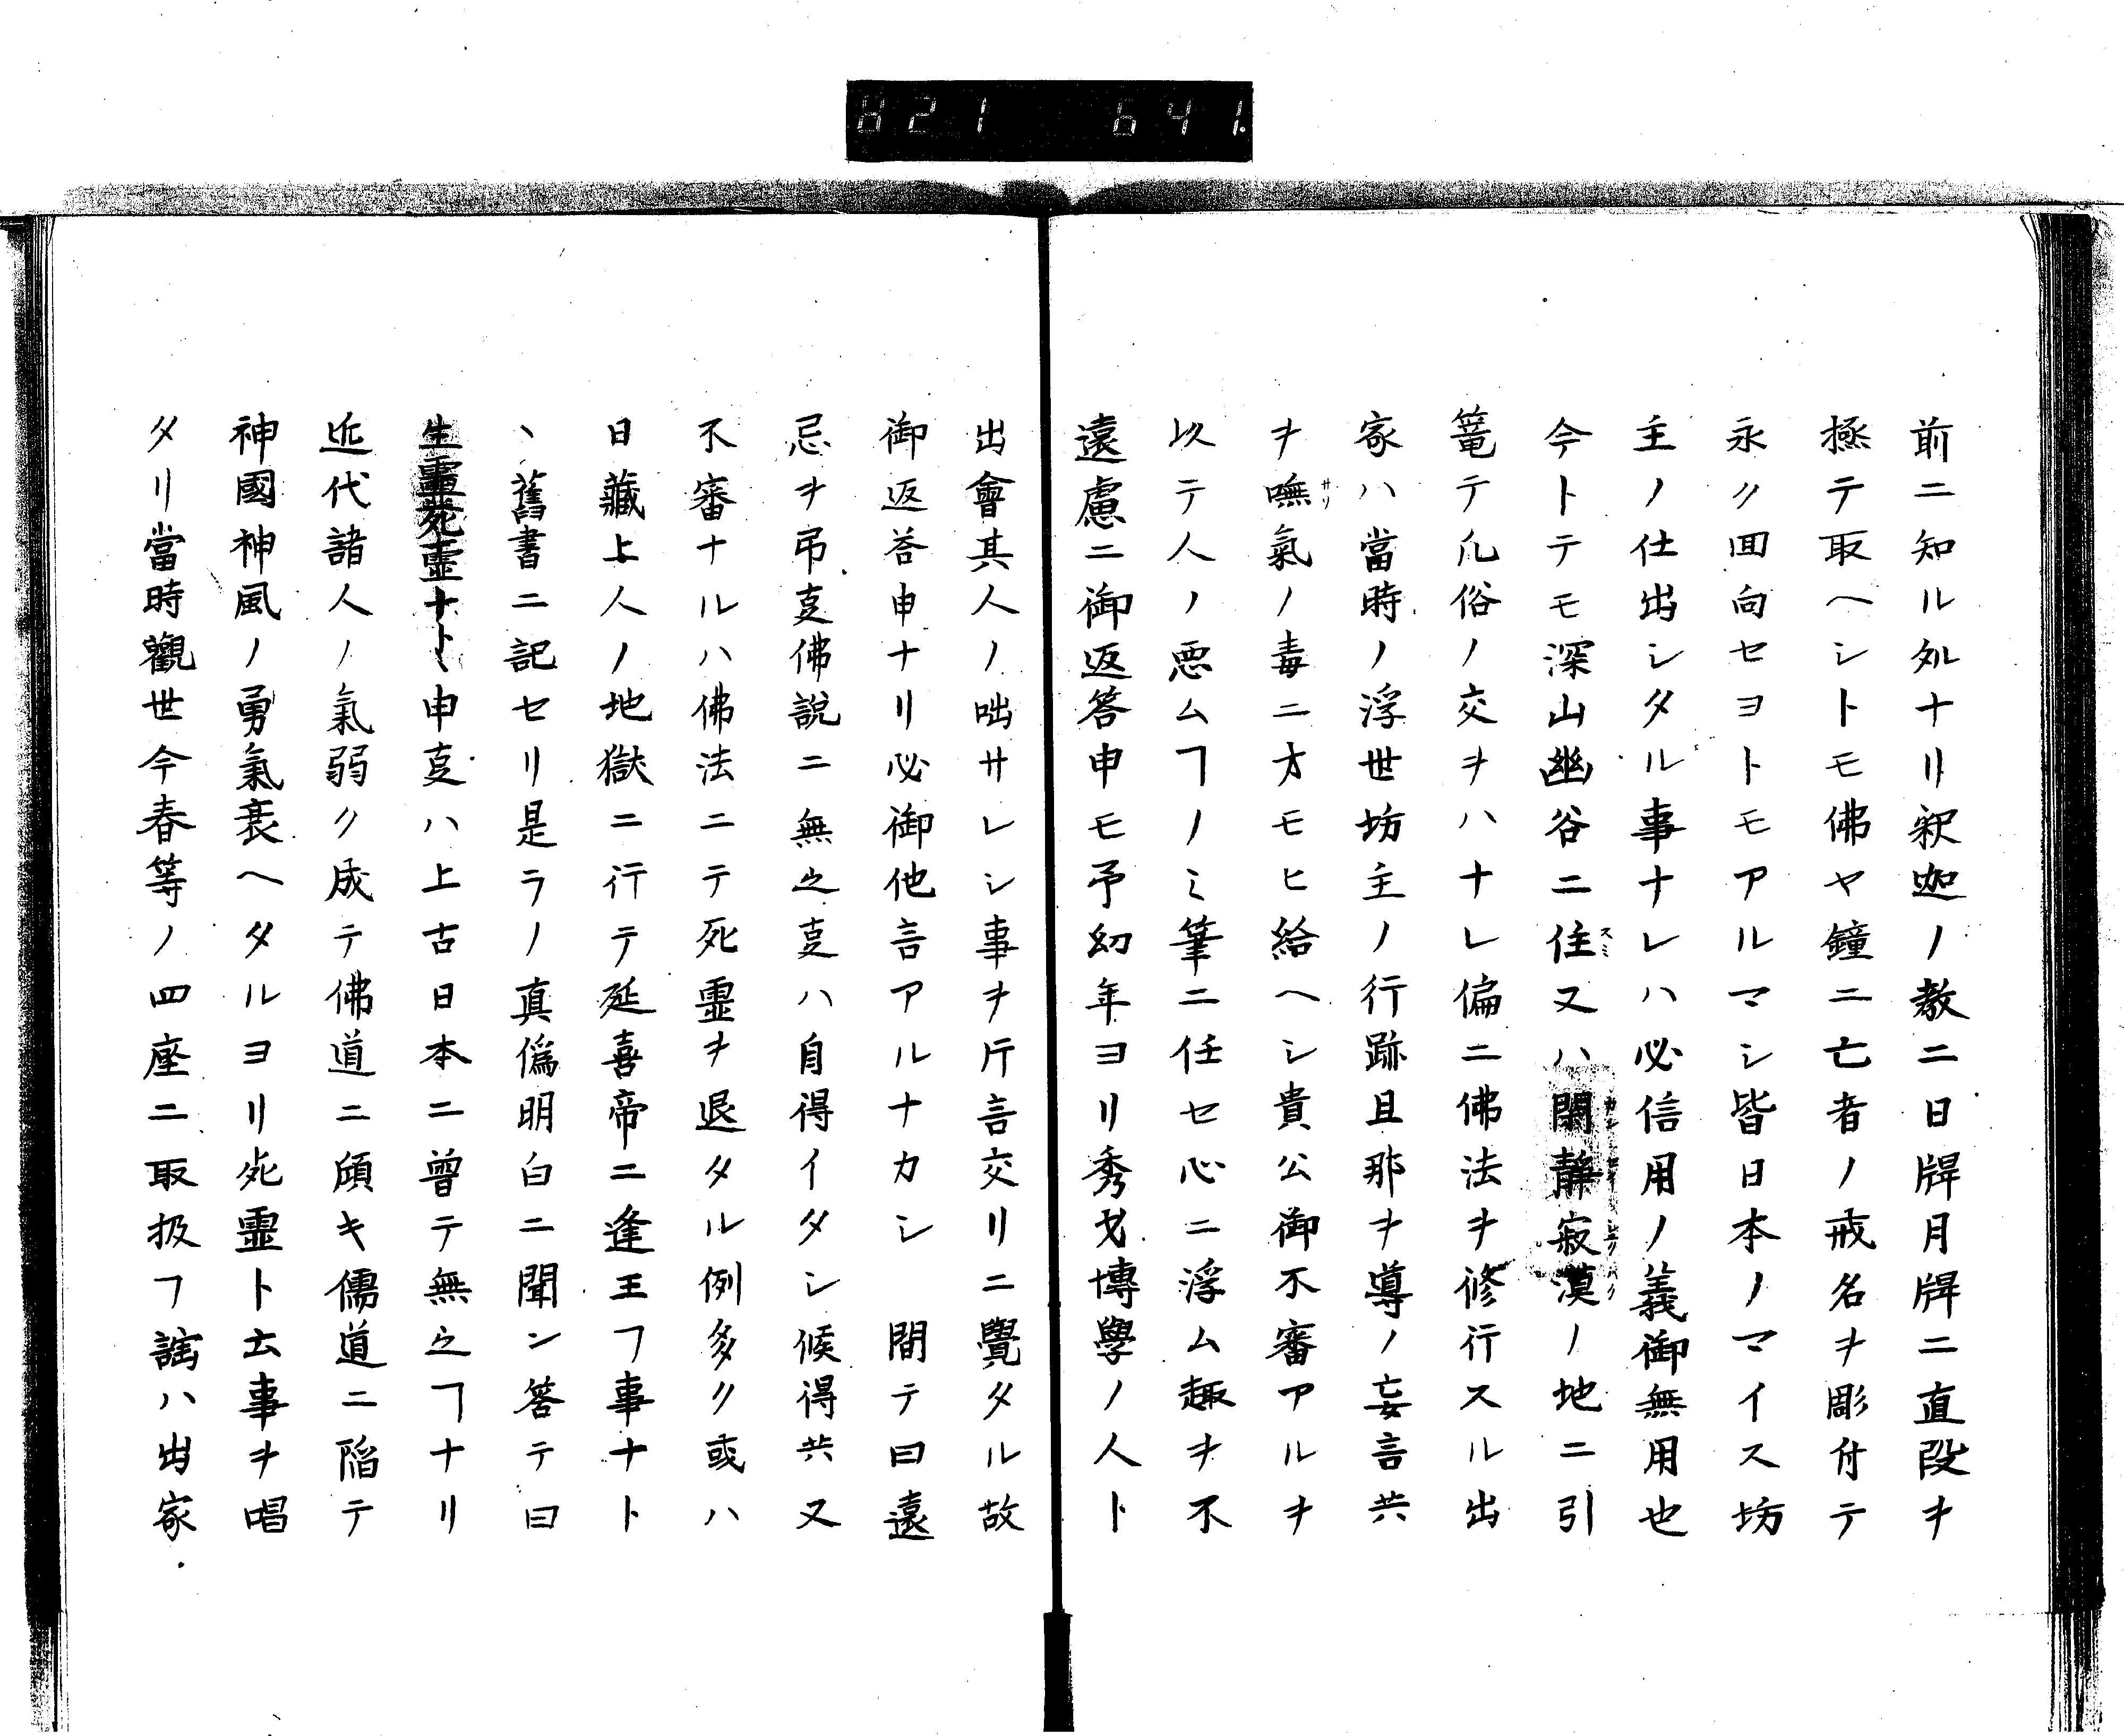 821 641.
前ニ知ル処ナリ釈迦ノ教ニ日牌月牌ニ直段ヲ
極テ取ヘシトモ佛ヤ鐘ニ亡者ノ戒名ヲ彫付テ
永ク回向セヨトモアルマシ皆日本ノマイス坊
主ノ仕出シタル事ナレハ必信用ノ義御無用也
今トテモ深山幽谷ニ住又ハ閑静寂漠ノ地ニ引
篭テ凡俗ノ交ヲハナレ偏ニ佛法ヲ修行スル出
家ハ當時ノ浮世坊主ノ行跡且那ヲ導ノ妄言共
ヲ嘸氣ノ毒ニオモヒ給ヘシ貴公御不審アルヲ
以テ人ノ悪ムヿノミ筆ニ任セ心ニ浮ム趣ヲ不
遠慮ニ御返答申モ予幼年ヨリ秀才博學ノ人ト
出會其人ノ咄サレシ事ヲ片言交リニ覺タル故
御返答申ナリ必御他言アルナカシ 問テ曰遠
忌ヲ弔叓佛説ニ無之叓ハ自得イタシ候得共又
不審ナルハ佛法ニテ死霊ヲ退タル例多ク或ハ
日藏上人ノ地獄ニ行テ延喜帝ニ逢王フ事ナト
、舊書ニ記セリ是ラノ真偽明白ニ聞ン答テ曰
生霊死霊ナト、申叓ハ上古日本ニ曽テ無之ヿナリ
近代諸人ノ氣弱ク成テ佛道ニ傾キ儒道ニ陷テ
神國神風ノ勇氣衰ヘタルヨリ死霊ト云事ヲ唱
タリ當時觀世今春等ノ四座ニ取扱フ謡ハ出家